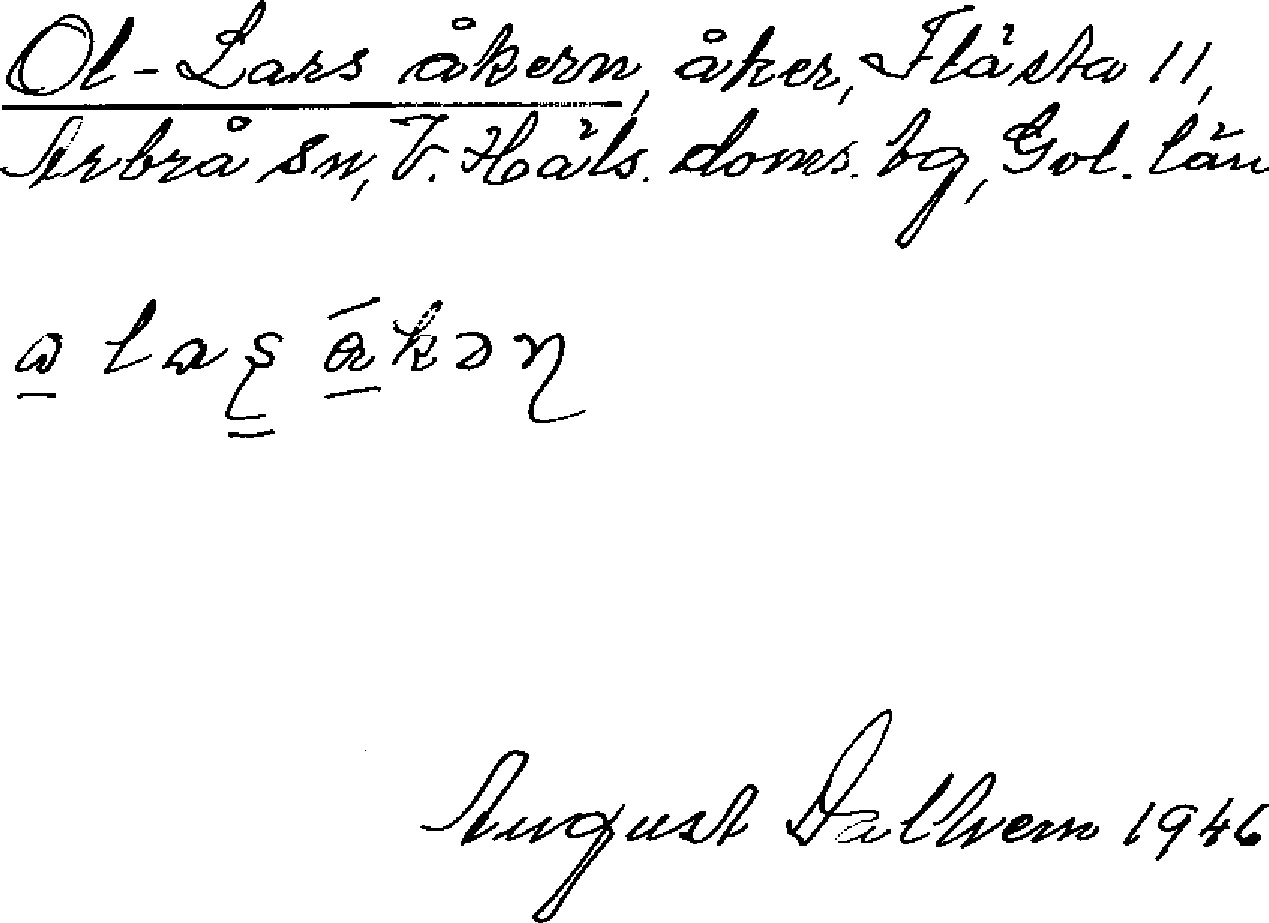 Ol-Lars åkern, åker, Flästa 11,
Arbrå sn, V. Häls. doms. hg, Gvl. län
August Dalhem 1946